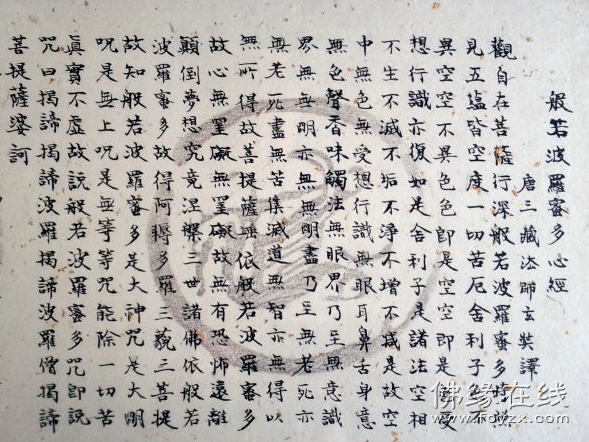 般若波羅蜜多心經
唐三藏法師玄奘譯
觀自在菩薩行深般若波羅蜜多時
見五蘊皆空度一切苦厄舍利子不
異空空不異色色即是空空即是受
想行識亦復如是舍利子是諸法空相
不生不滅不垢不淨不增不減是故空
中無色無受想行識無眼耳鼻舌身意
無色聲香味觸法無眼界乃至無意識
界無無明亦無無明盡乃至無老死亦
無老死盡無苦集滅道無智亦無得以
無所得故菩提薩埵依般若波羅蜜多
故心無罣礙無罣礙故無有恐怖遠離
顛倒夢想究竟涅槃三世諸佛依般若
波羅蜜多故得阿耨多羅三藐三菩提
故知般若波羅蜜多是大神咒是大明
呪是無上呪是無等等咒能除一切苦
真實不虛故說般若波羅蜜多咒即說
咒曰揭諦揭諦波羅揭諦波羅僧揭諦
菩提薩婆訶
佛缘在线